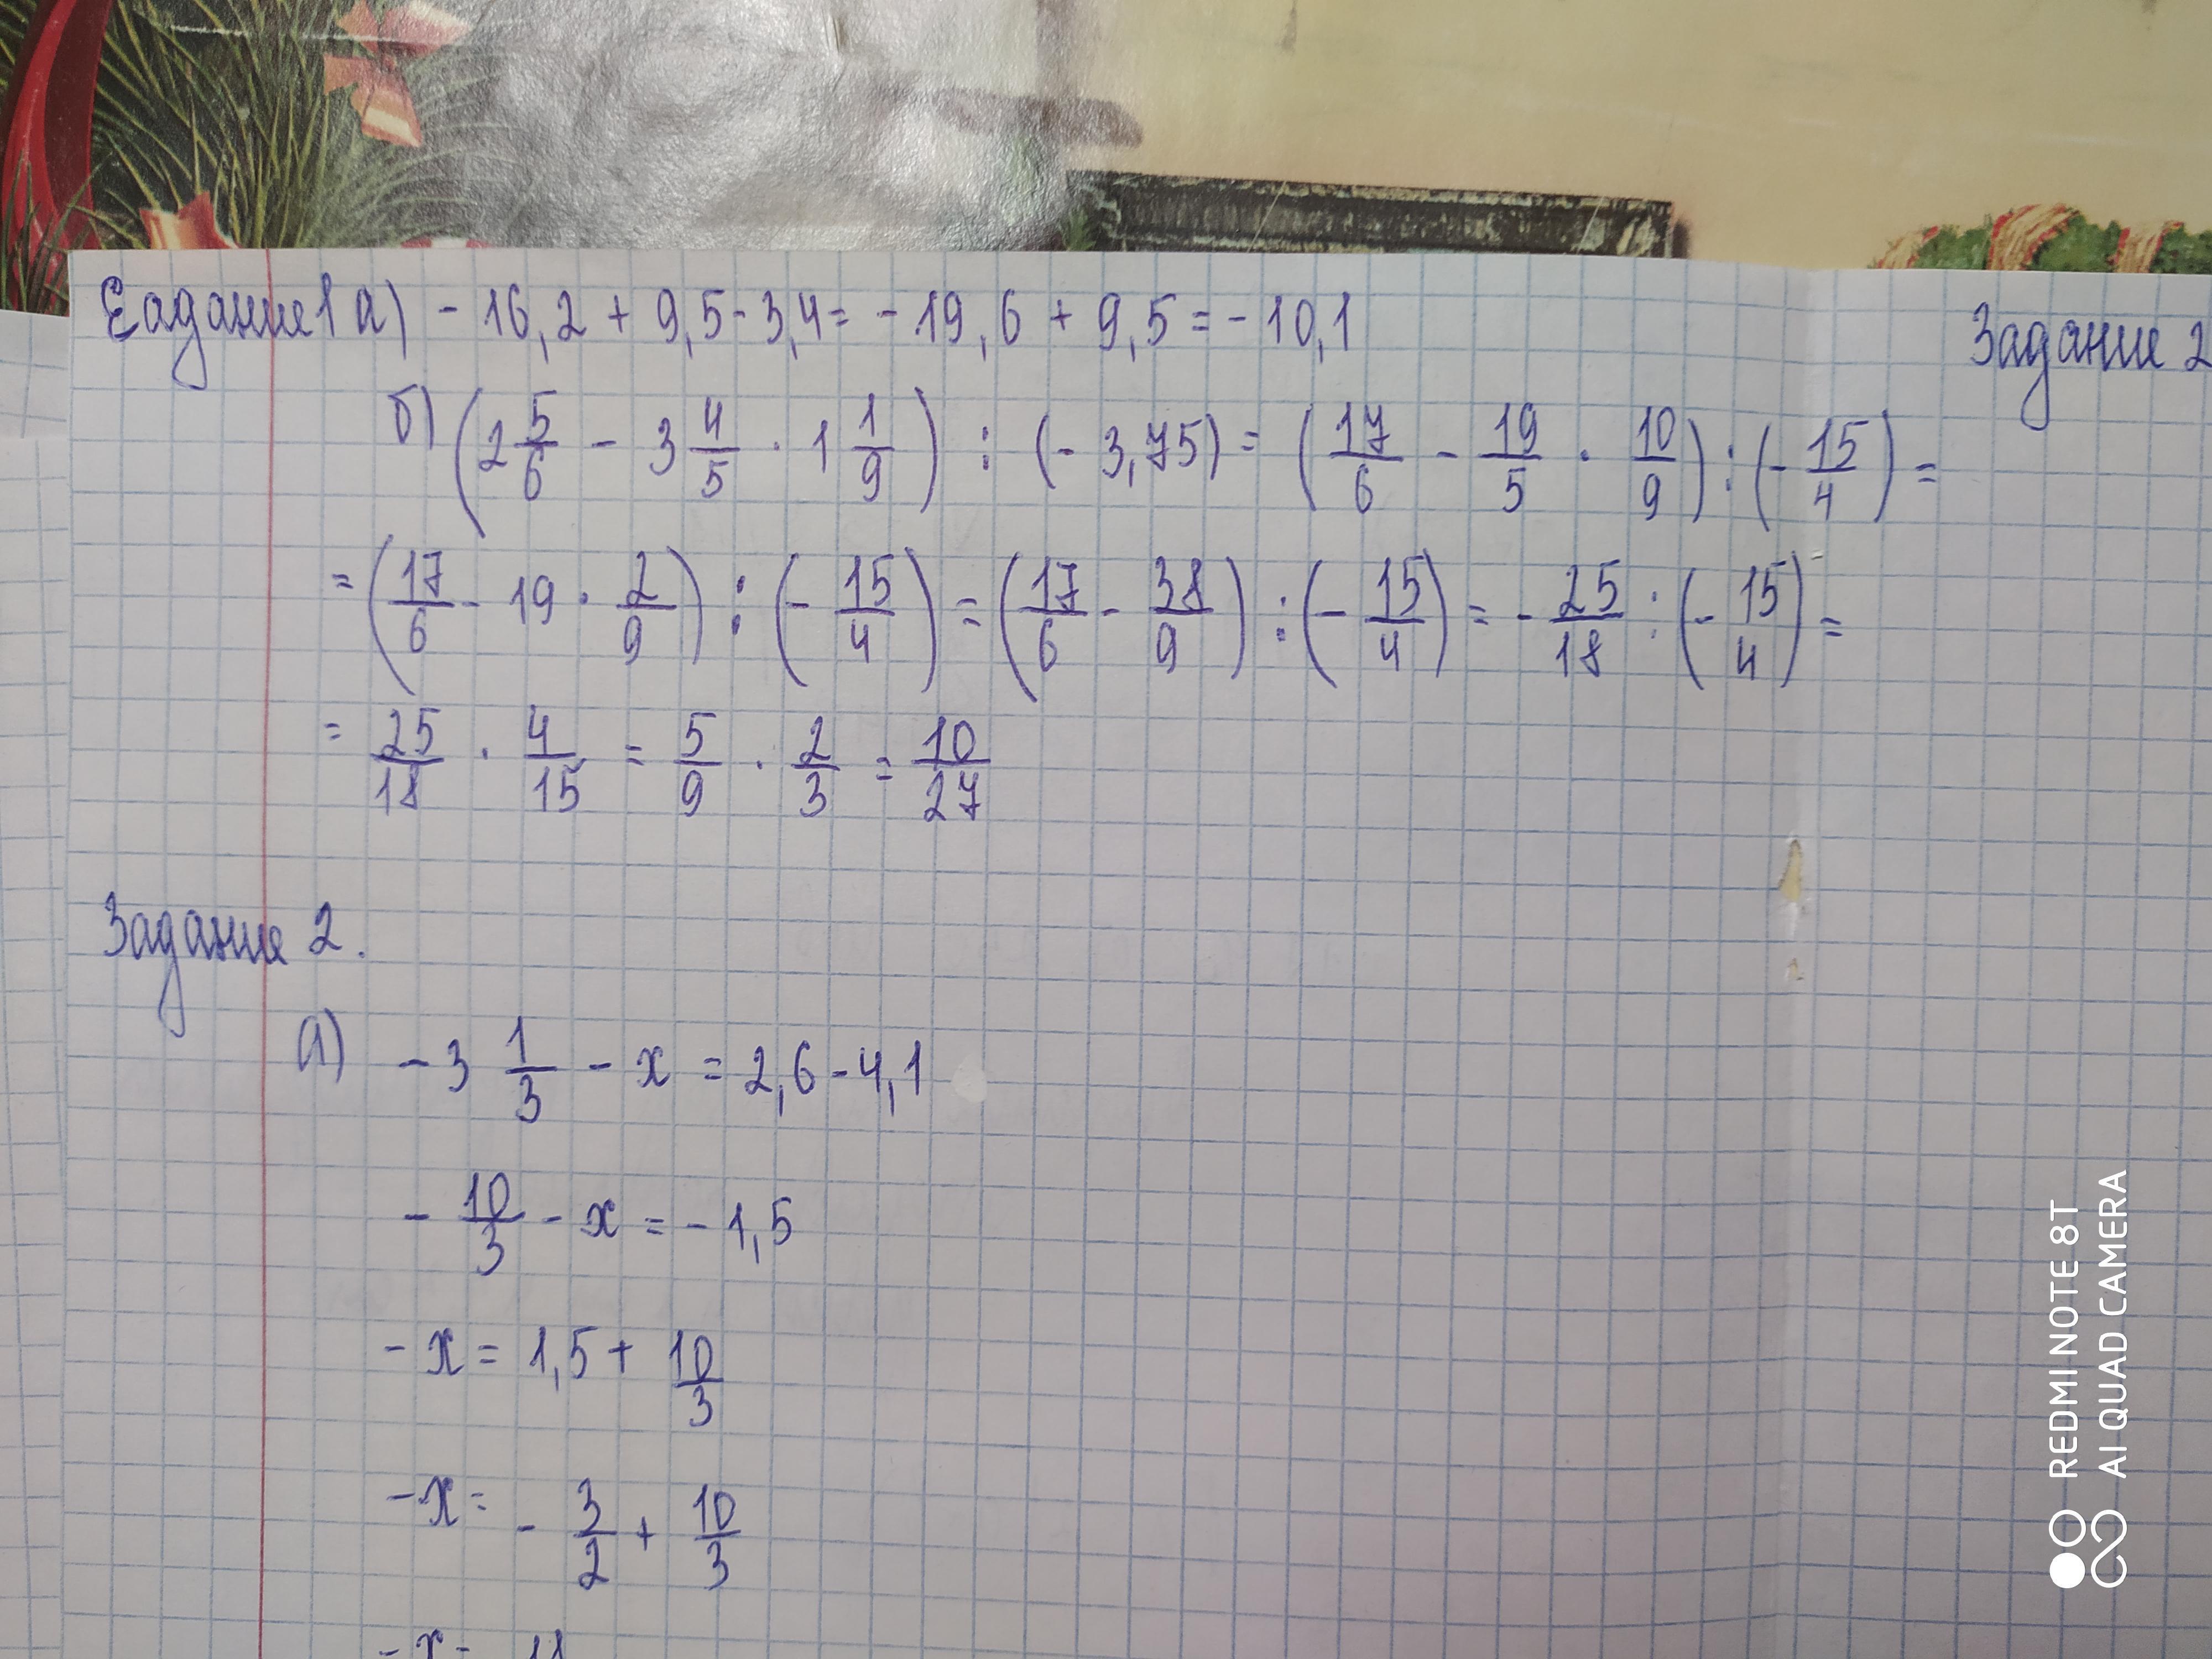 Задание 1 а) - 16,2 + 9,5 - 3,4 = - 19,6 + 9,5 = - 10,1
Задание 2
б) (2 5/6 - 3 4/5 · 1 1/9) : (- 3,75) = (17/6 - 19/5 · 10/9) : (- 15/4) =
= (17/6 - 19 · 2/9) : (- 15/4) = (17/6 - 38/9) : (- 15/4) = - 25/18 : (- 15/4) =
= 25/18 · 4/15 = 5/9 · 2/3 = 10/27
Задание 2.
а) - 3 1/3 - x = 2,6 - 4,1
- 10/3 - x = - 1,5
- x = 1,5 + 10/3
- x = - 3/2 + 10/3
- x = 11
REDMI NOTE 8T
AI QUAD CAMERA